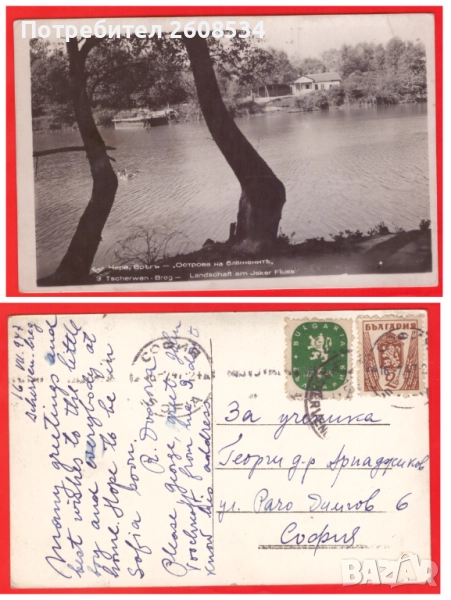 Потребител 2608534
Черв. Брѣгъ — „Острова на блаженитѣ“
9 Tscherwen - Breg — Landschaft am Jsker Fluss
16. VII. 947
Many greetings and
best wishes to the little
boy and everybody at
home. Hope to be in
Sofia soon.
Please George, greet
from me, I don't
know his address
СОФИЯ
BULGARIA
БЪЛГАРИЯ
За ученика
Георги д-р Арнаджиков
ул. Рачо Димчов 6
София
BAZAR